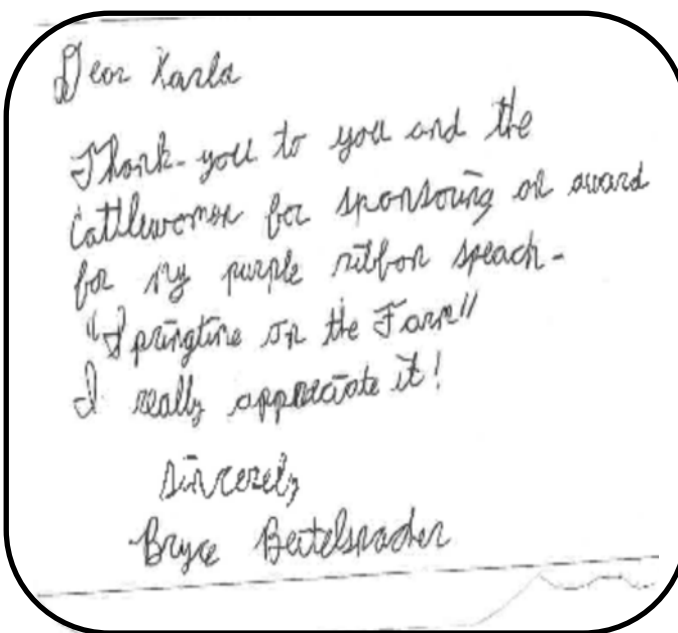 Dear Karla
Thank-you to you and the
Cattlewomen for sponsoring an award
for my purple ribbon speach-
"Springtime on the Farm"
I really appreciate it!
Sincerely
Bryce